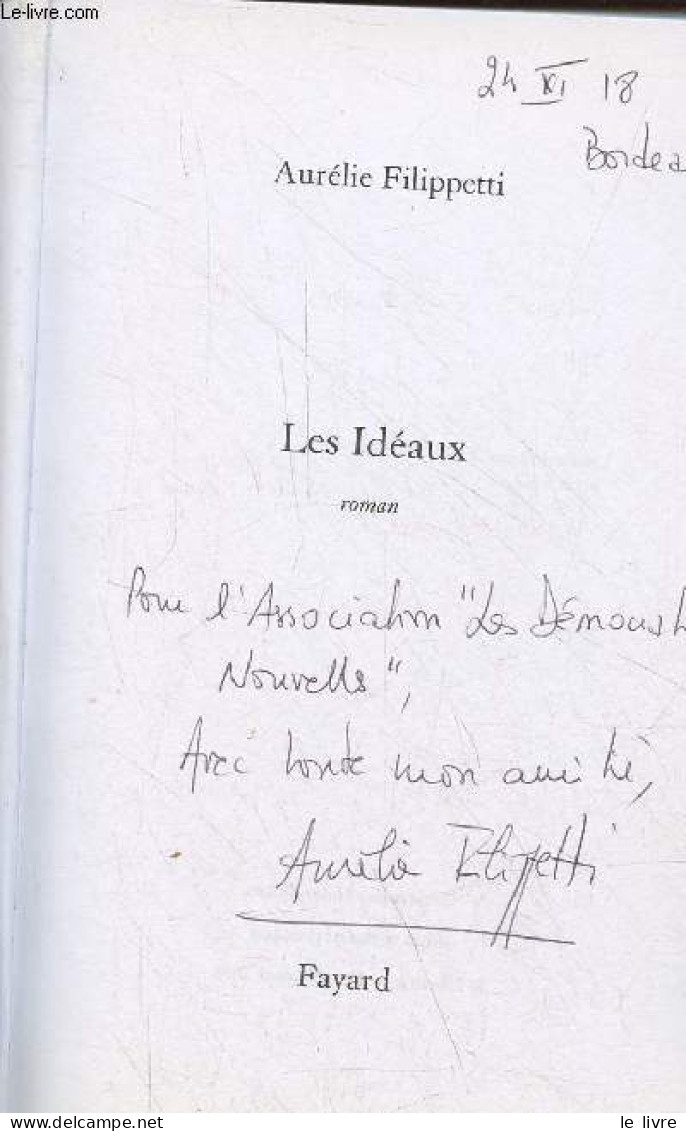 Le-livre.com
24 XI 18
Bordea
Aurélie Filippetti
Les Idéaux
roman
Pour l'Association "Les Démoust
Nouvelle",
Avec toute mon amitié,
Aurélie Filippetti
Fayard
le livre